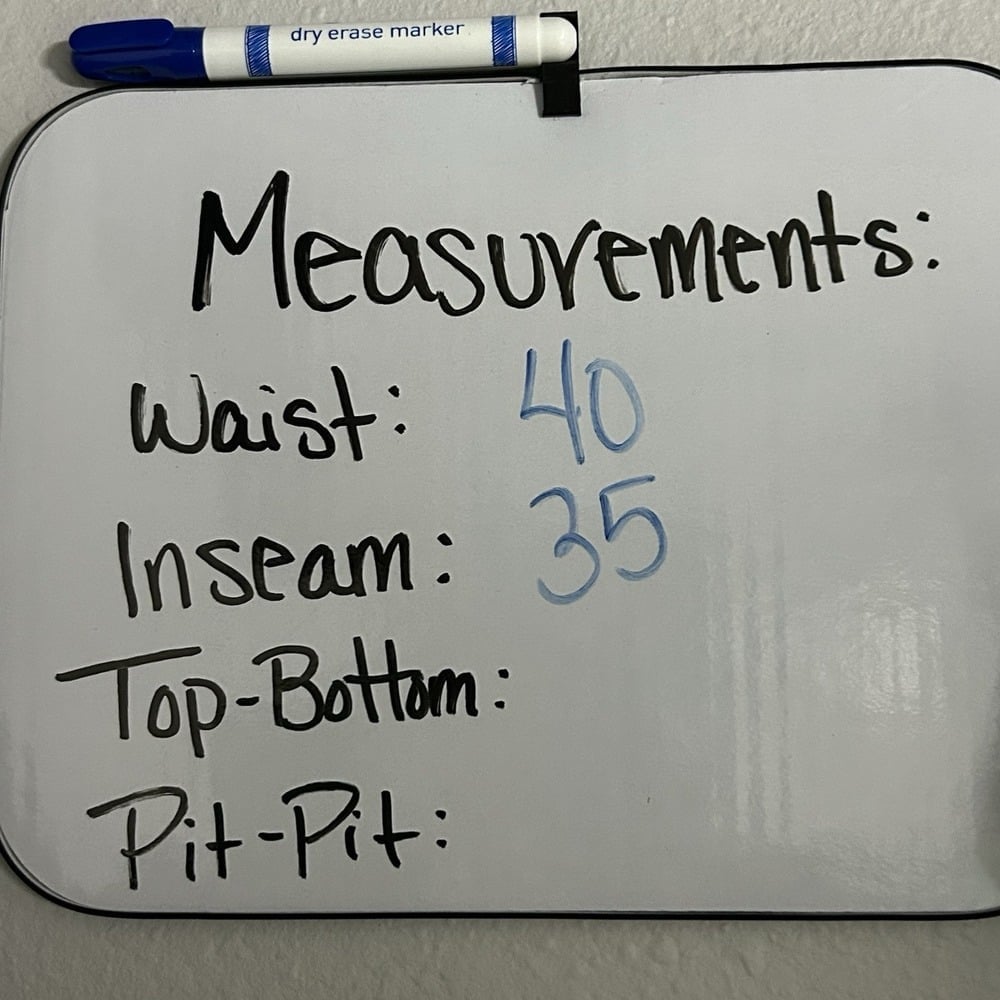 dry erase marker
Measurements:
Waist: 40
Inseam: 35
Top-Bottom:
Pit-Pit: